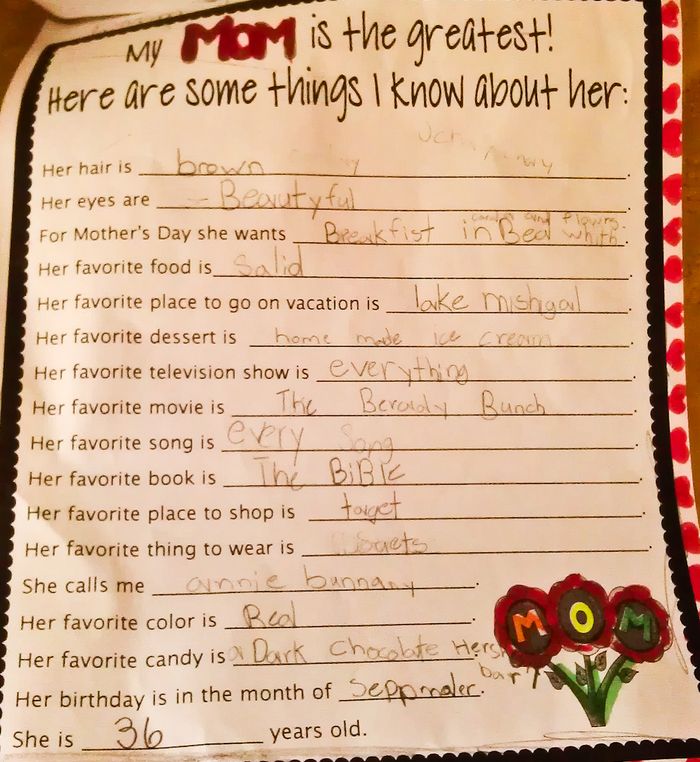 My MOM is the greatest!
Here are some things I know about her:
Her hair is brown
Her eyes are Beautyful
candes and flowrs
For Mother's Day she wants Breakfist in Bed whith.
Her favorite food is Salid.
Her favorite place to go on vacation is lake mishigal.
Her favorite dessert is home made ice cream.
Her favorite television show is everything.
Her favorite movie is The Beraidy Bunch.
Her favorite song is every Song.
Her favorite book is The BiBle.
Her favorite place to shop is target.
Her favorite thing to wear is.
She calls me annie bunnany.
Her favorite color is Red.
Her favorite candy is a Dark Chocolate
bar
Her birthday is in the month of Seppmaler.
She is 36 years old.
MOM